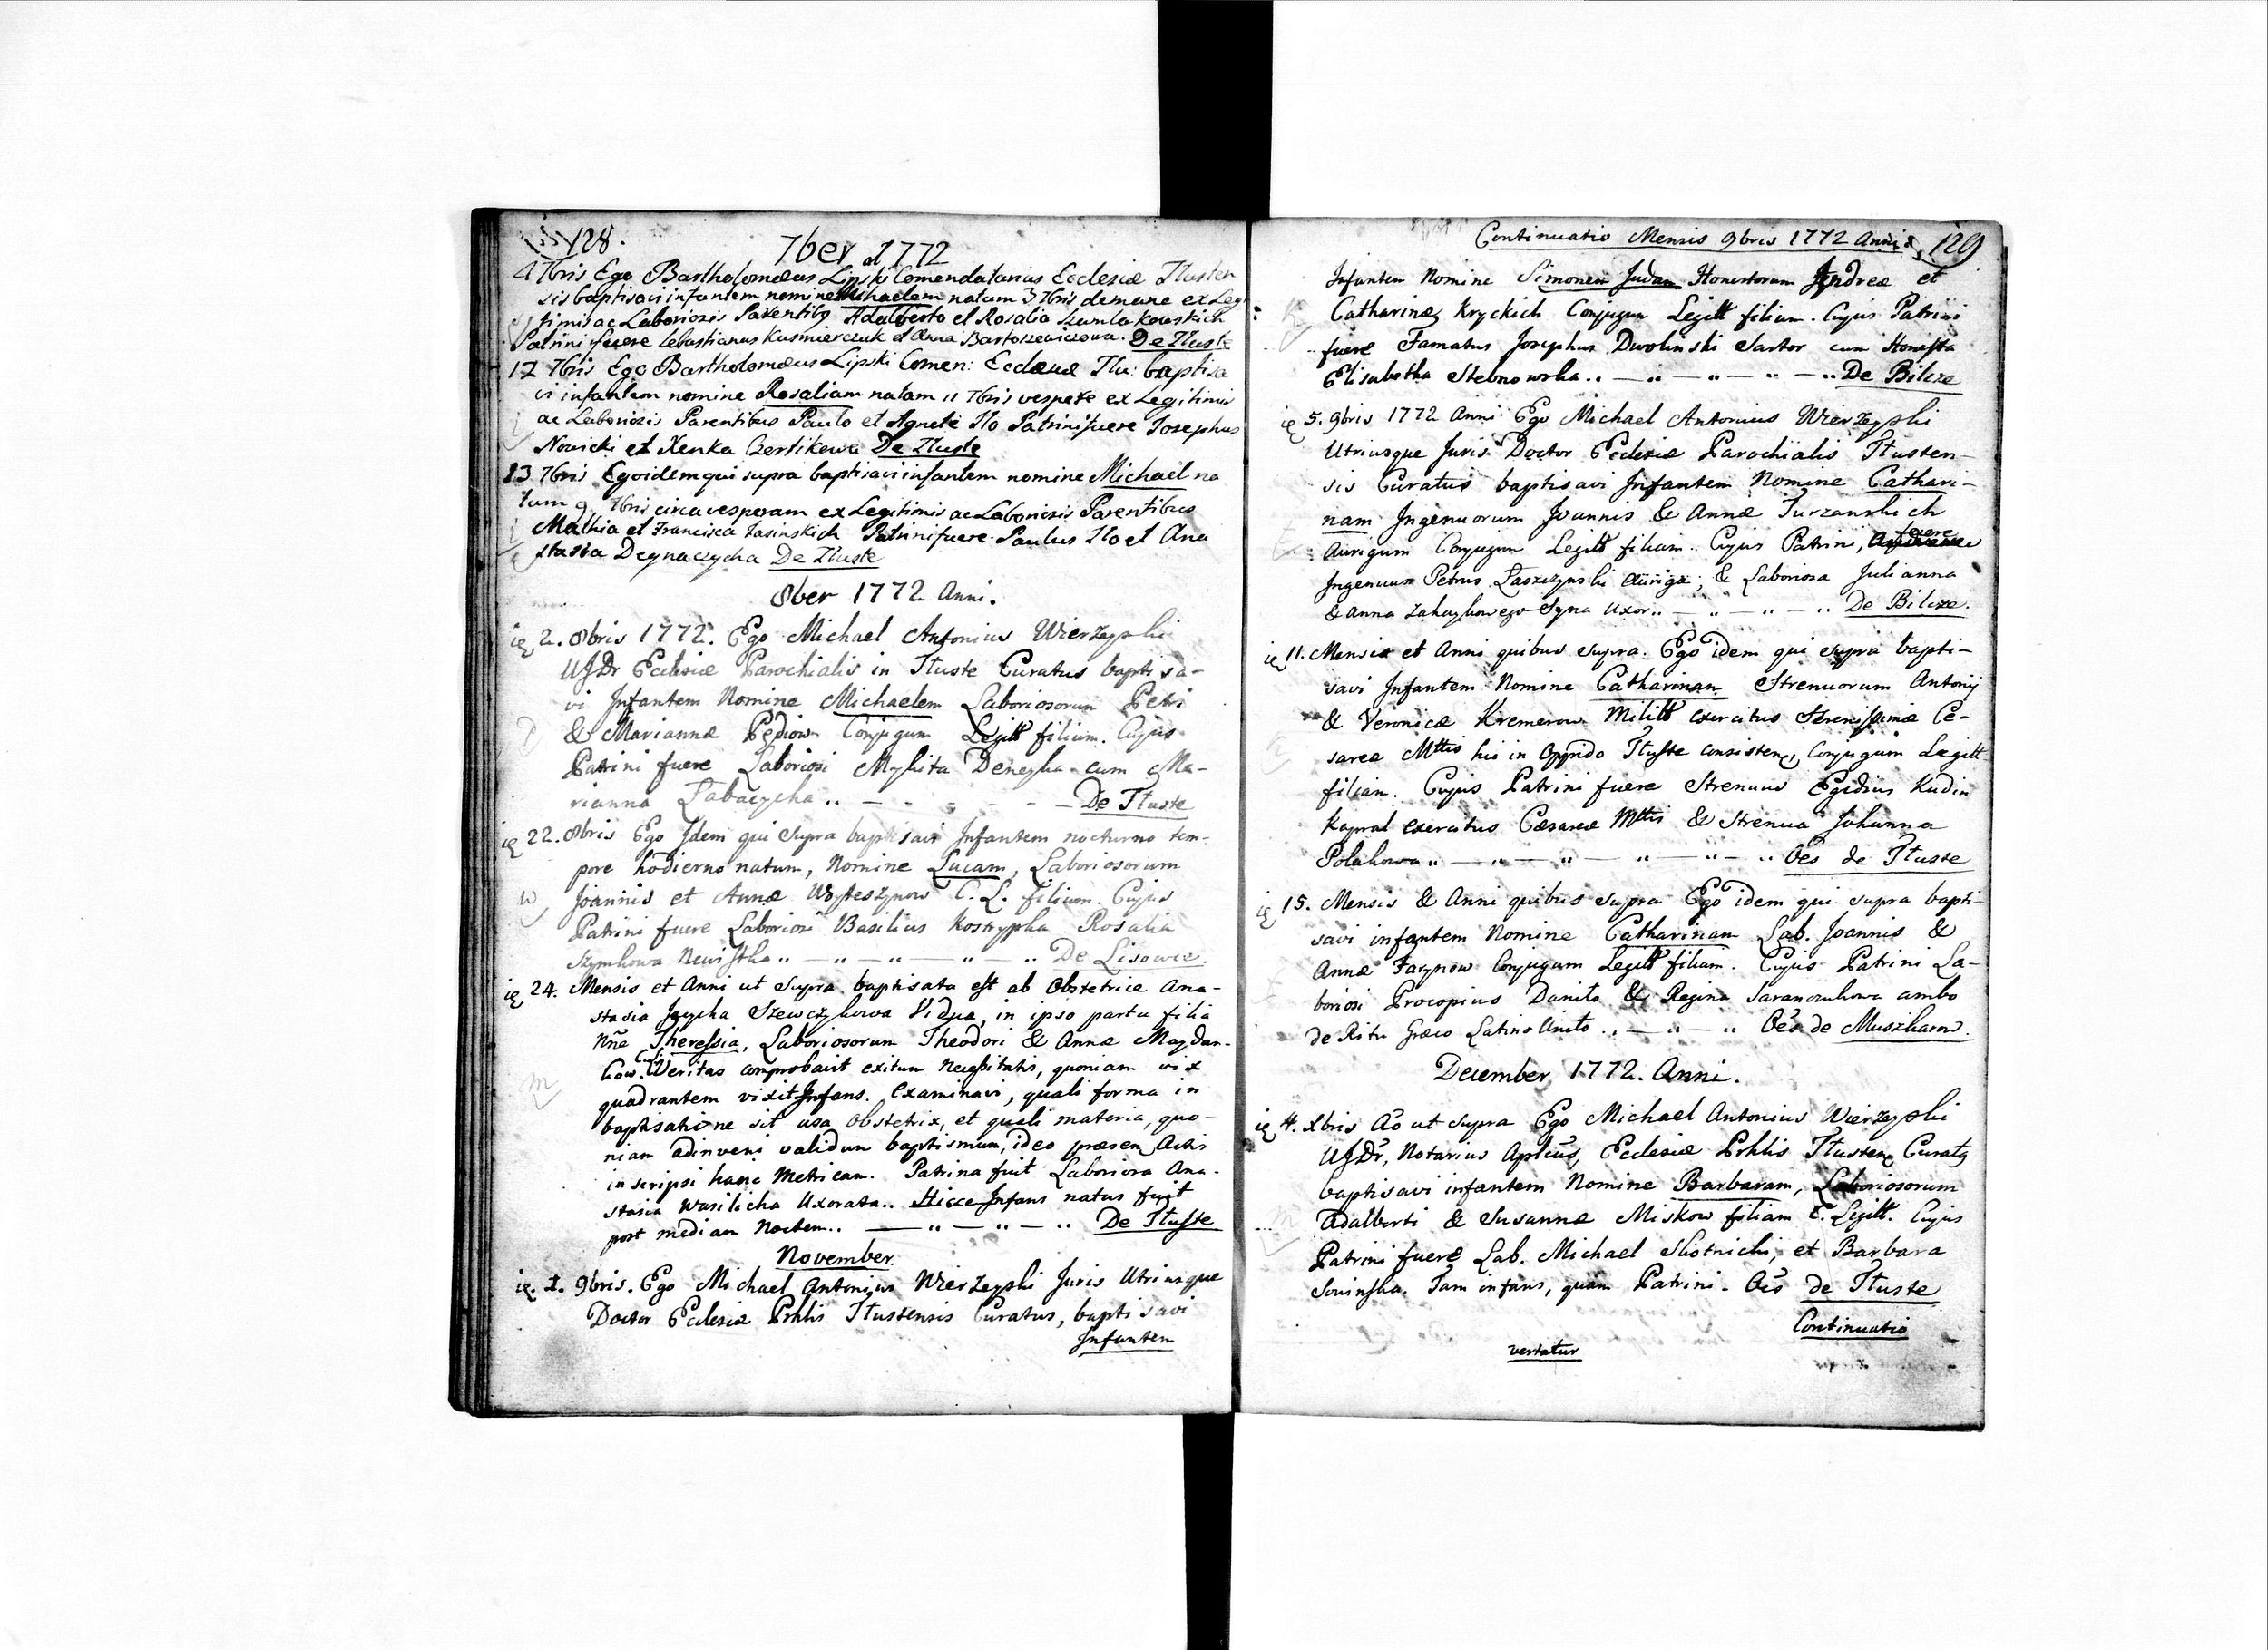 128.
7ber d 1772
4 7bris Ego Bartholomæus Lipski Comendatarius Ecclesiæ Tlusten
sis baptisavi infantem nomine Michaelem natum 3 7bris demane ex Legi
timis ac Laboriosis Parentibg Adalberto et Rosalia Szumlakowskich
Patrini fuere Sebastianus Kusmierczuk et Anna Bartoszewiczowa. De Tluste
12 7bris Ego Bartholomæus Lipski Comen: Ecclesiæ Tlu: baptisa
vi infantem nomine Rosaliam natam 11 7bris vespere ex Legitimis
ac Laboriosis Parentibus Paulo et Agnete Ilo Patrini fuere Josephus
Nowicki et Xenka Czortikowa De Tluste
13 7bris Ego idem qui supra baptisavi infantem nomine Michael na
tum 9 7bris circa vesperam ex Legitimis ac Laboriosis Parentibus
Mathia et Francisca Jasinskich Patrini fuere Paulus Ilo et Ana
stasia Deynaczycha De Tluste
8ber 1772 Anni.
2. 8bris 1772. Ego Michael Antonius Wierzeyski
UJDr Ecclesiæ Parochialis in Tłuste Curatus baptisa-
vi Infantem Nomine Michaelem Laboriosorum Petri
& Mariannæ Pediow Conjugum Legitt filium. Cujus
Patrini fuere Laboriosi Mykita Deneyka cum Ma-
rianna Łabaczycha .. De Tłuste
22. 8bris Ego Idem qui supra baptisavi Infantem nocturno tem-
pore hodierno natum, Nomine Lucam, Laboriosorum
Joannis et Annæ C. L. filium. Cujus
Patrini fuere Laboriosi Basilius Rosalia
Szymkowa .. De Lisowce.
24. Mensis et Anni ut supra baptisata est ab Obstetrice Ana-
stasia Szewczykowa Vidua, in ipso partu filia
Nne Theressia, Laboriosorum Theodori & Annæ Maydan-
kow. Cujus Veritas comprobavit exitum necessitatis, quoniam vix
quadrantem vixit Infans. Examinavi, quali forma in
baptisatione sit usa Obstetrix, et quali materia, quo-
niam adinveni validum baptismum, ideo præsen Actis
inscripsi hanc Metricam. Patrina fuit Laboriosa Ana-
stasia Wasilicha Uxorata.. Hicce Infans natus fuit
post mediam Noctem.. De Tłuste
November.
1. 9bris. Ego Michael Antonius Wierzeyski Juris Utriusque
Doctor Ecclesiæ Prhlis Tłustensis Curatus, baptisavi
Infantem
Continuatio Mensis 9bris 1772 Anni 129
Infantem Nomine Simonem Judam Honestorum Andreæ et
Catharinæ Kryckich Conjugum Legitt filium. Cujus Patrini
fuere Famatus Josephus Dwolinski Sartor cum Honesta
Elisabetha Stebnowska .. De Bilcze
5. 9bris 1772 Anni Ego Michael Antonius Wierzeyski
Utriusque Juris Doctor Ecclesiæ Parochialis Tłusten-
sis Curatus baptisavi Infantem Nomine Cathari-
nam Ingenuorum Joannis & Annæ Turzanskich
Aurigum Conjugum Legitt filiam. Cujus Patrini, fuere
Ingenuus Petrus Laszczynski Auriga, & Laboriosa Julianna
& Anna Zahaykowego Syna Uxor .. De Bilcze.
11. Mensis et Anni quibus supra. Ego idem qui supra bapti-
savi Infantem Nomine Catharinam Strenuorum Antonij
& Veronicæ Kremerow Militt exercitus Serenissimæ Ce-
sareæ Mttis hic in Oppido Tłuste consisten, Conjugum Legitt
filiam. Cujus Patrini fuere Strenuus Egidius Kudin
Kapral exercitus Cæsareæ Mttis & Strenua Johanna
Polakowa .. Oes de Tłuste
15. Mensis & Anni quibus supra Ego idem qui supra bapti-
savi infantem Nomine Catharinam Lab. Joannis &
Annæ Farynow Conjugum Legitt filiam. Cujus Patrini La-
boriosi Procopius Daniło & Regina Saranczukowa ambo
de Ritu Græco Latino Unito .. Oes de Muszkarow.
December 1772. Anni.
4. Xbris Ao ut supra Ego Michael Antonius Wierzeyski
UJDr, Notarius Aplcus, Ecclesiæ Prhlis Tłusten Curatg
baptisavi infantem Nomine Barbaram, Laboriosorum
Adalberti & Susannæ Miskow filiam C. Legitt. Cujus
Patrini fuere Lab. Michael Slotnicki, et Barbara
Sowinska. Tam infans, quam Patrini. Oes de Tłuste
Continuatio
vertatur